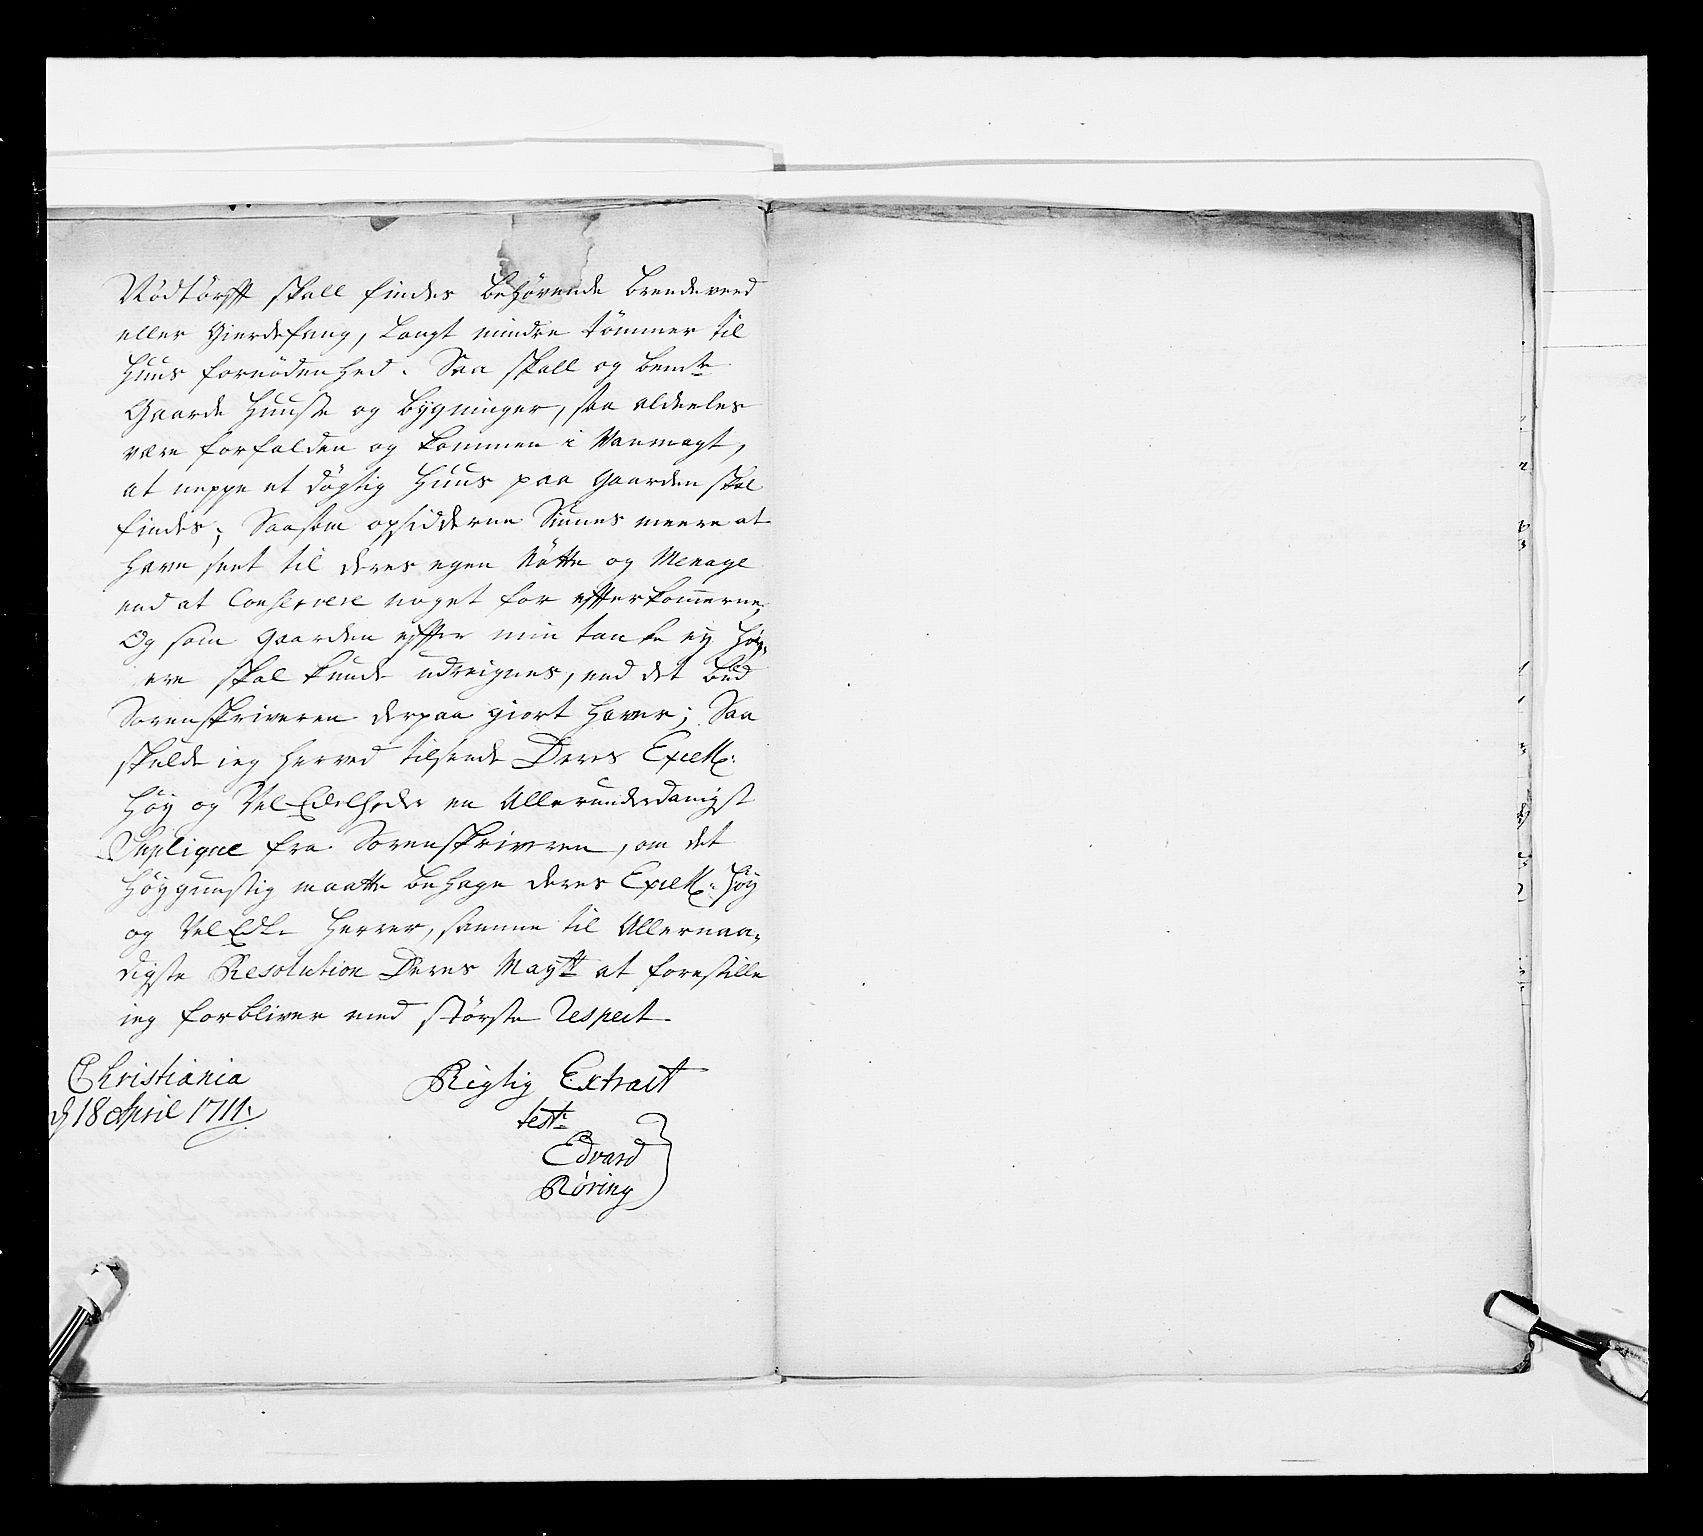 Nödtörfft skall findes behörende brendeveed
eller Gierdefang, langt mindre tömmer til
Huus fornödenhed. Saa skall og bemte
Gaarde Huuse og bygninger, saa aldeeles
være forfalden og kommen i Vanmagt,
at neppe et dögtig Huus paa Gaarden skal
findes; Saasom opsidderne Siunes meere at
have seet til deres egen Nötte og Menage
end at Conservere noget for effterkommerne;
Og som Gaarden effter min tanke ey Höy-
ere skal kunde udreignes, end det bud
Sorenskriveren derpaa giort haver; Saa
skulde ieg herved tilsende Deres Excell:
Höy og Vel Edelheder en Allerunderdanigst
Suplique fra Sorenskriveren, om det
Höygunstig maatte behage deres Excell: Höy
og Vel Edle Herrer, samme til Allernaa-
digste Resolution Deres Maytt at forestille
ieg forbliver med störste Respect.
Christiania
d 18 April 1711.
Rigtig Extract
test:
Edvard
Röring